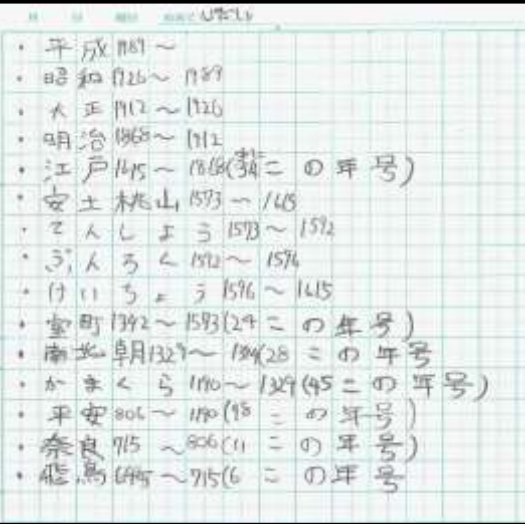 ・平成1989～
・昭和1926～1989
・大正1912～1926
・明治1868～1912
・江戸1615～1868(34この年号)
・安土桃山1573～1615
・てんしょう1573～1592
・ぶんろく1592～1596
・けいちょう1596～1615
・室町1392～1593(24この年号)
・南北朝1329～(28この年号
・かまくら1190～1329(45この年号)
・平安806～1190(98この年号)
・奈良715～806(11この年号)
・飛鳥～715(6この年号